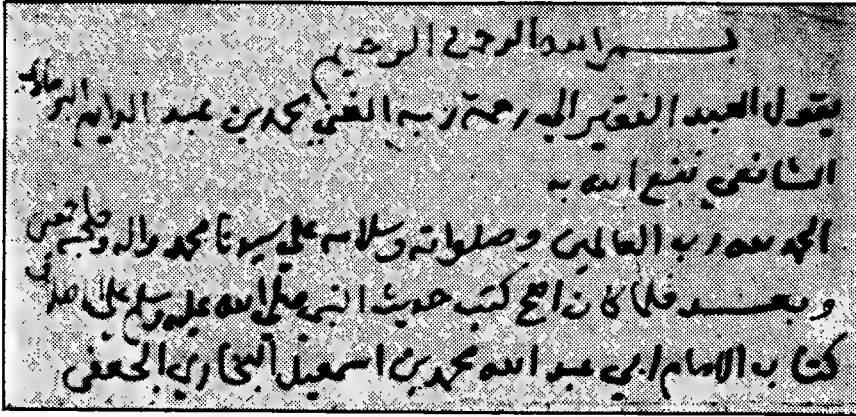 بسم الله الرحمن الرحيم
يقول العبد الفقير الي رحمة ربه الغني محمد بن عبد الدايم البرماوي
الشافعي نفع الله به
الحمد لله رب العالمين وصلواته وسلامه علي سيدنا محمد واله وصحبه اجمعين
وبعد فلما كان اصح كتب حديث النبي صلي الله عليه وسلم علي
كتاب الامام ابي عبد الله محمد بن اسمعيل البخاري الجعفي